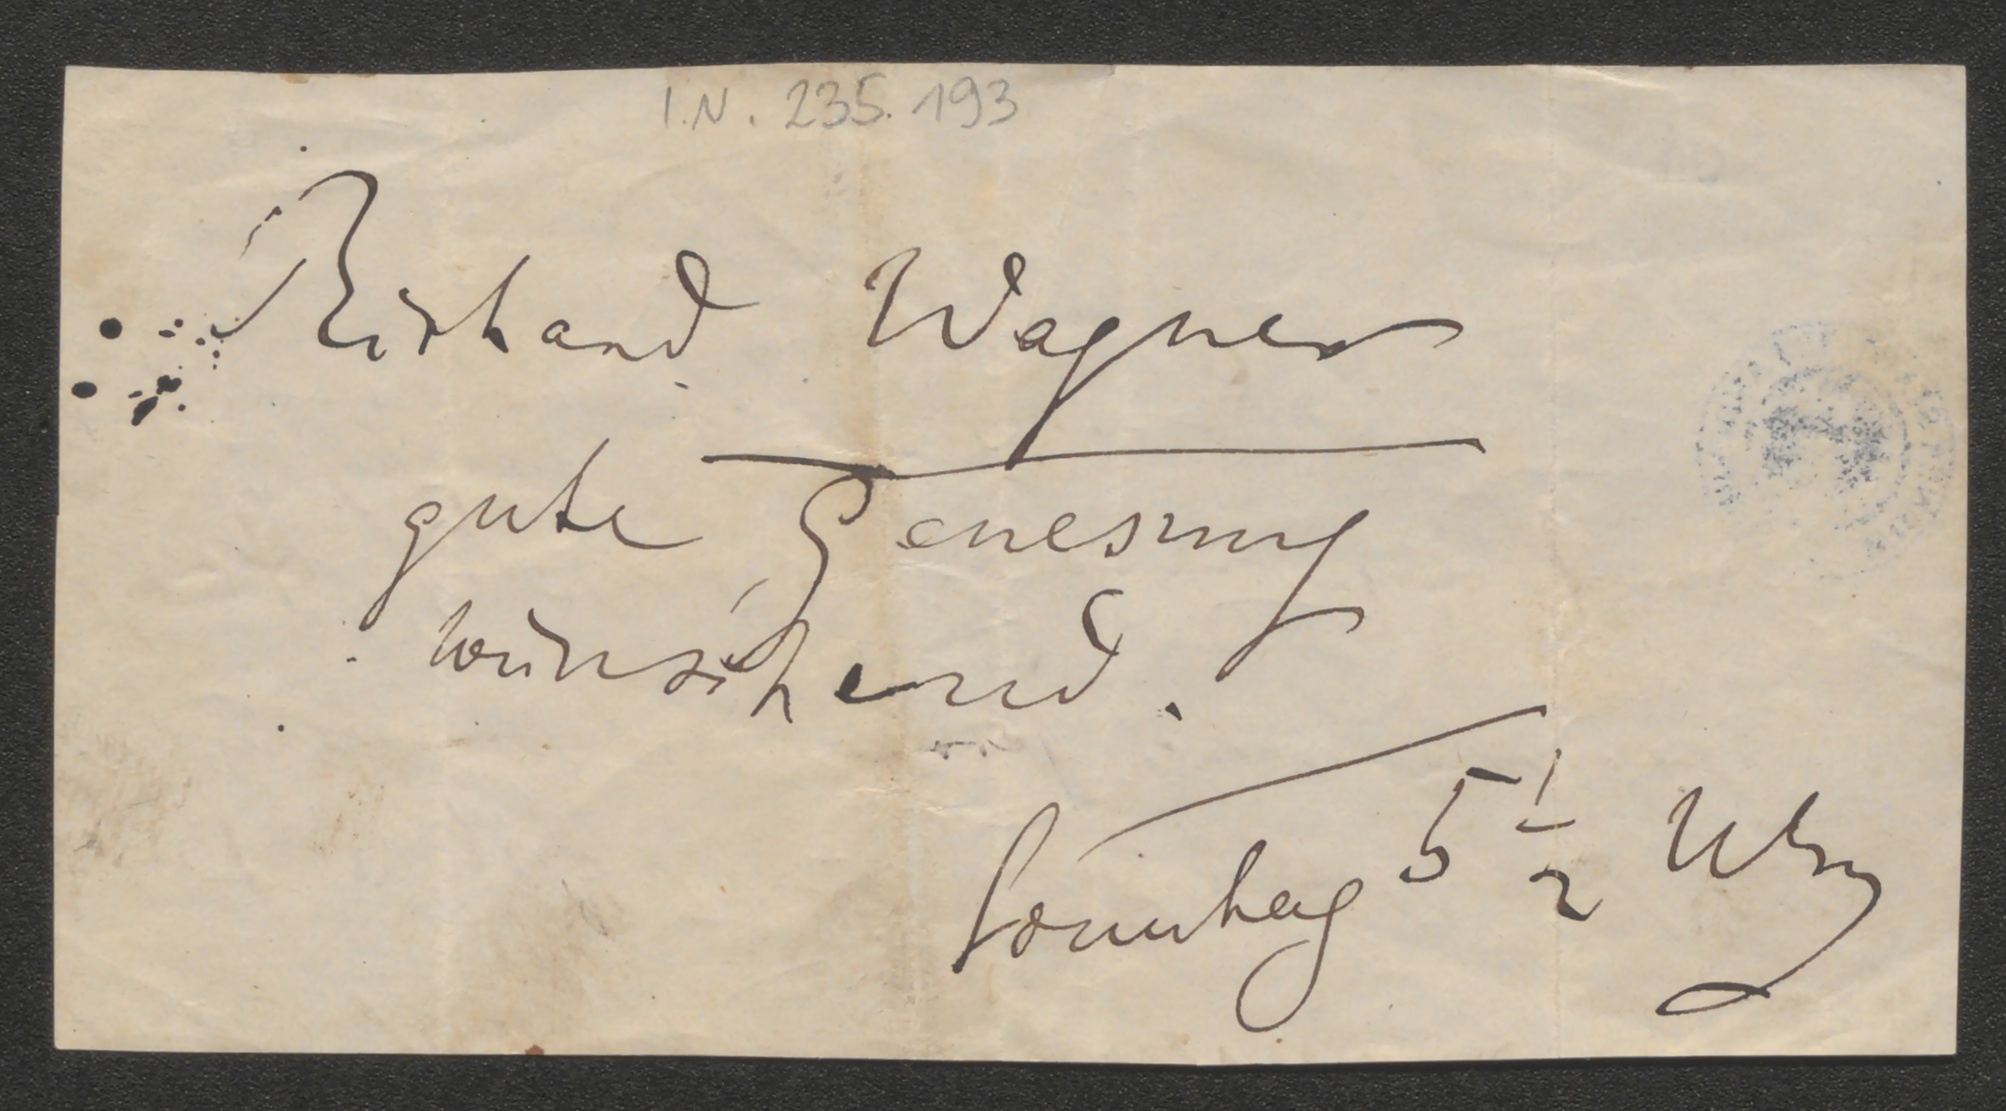 I.N. 235.193
Richard Wagner
gute Genesung
wünschend.
Sonntag 5 1/2 Uhr